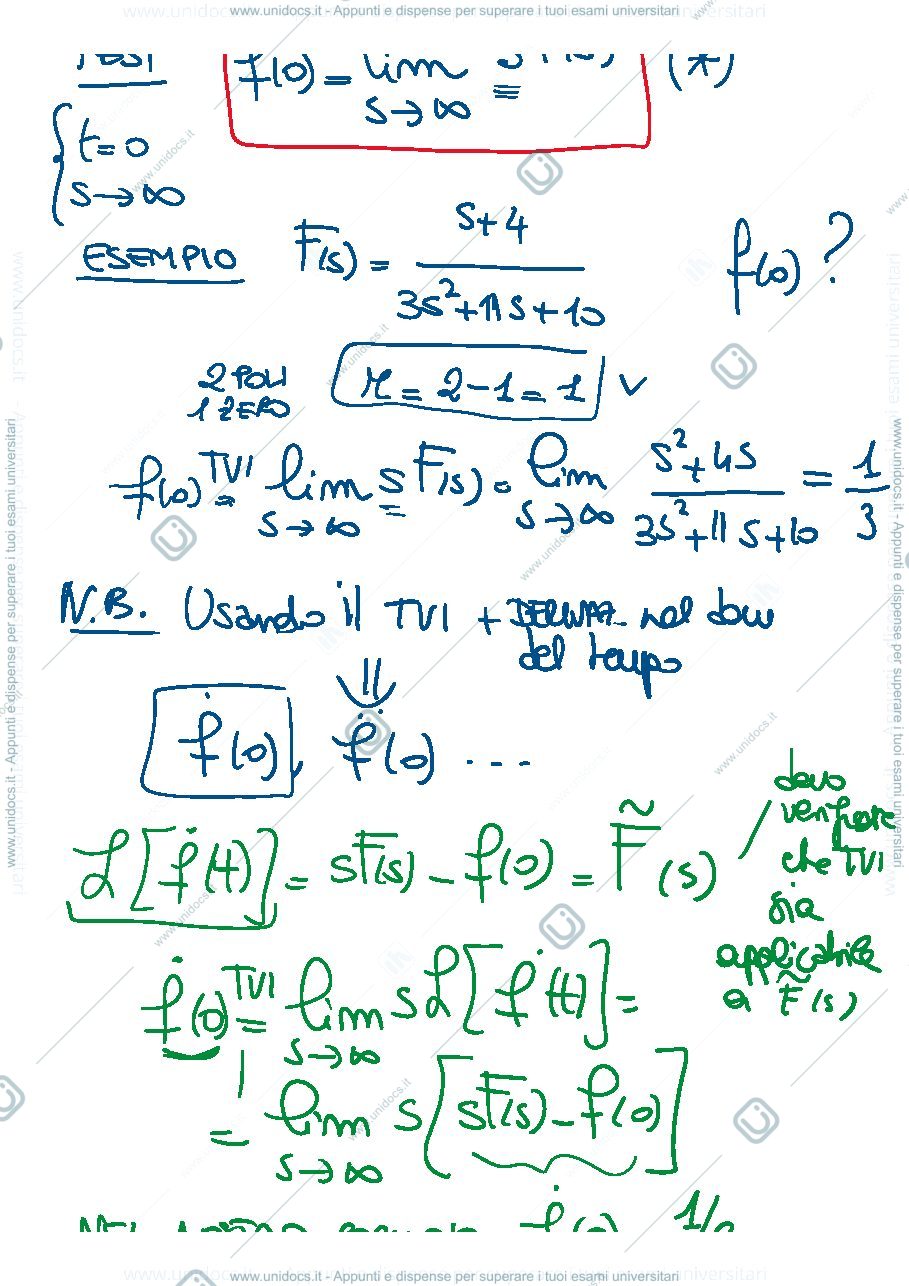 www.unidocs.it - Appunti e dispense per superare i tuoi esami universitari
TESI f(0) = lim s F(s) (*)
s→∞
{ t=0
s→∞
ESEMPIO F(s) = (s+4)/(3s²+11s+10) f(0)?
2 POLI
1 ZERO
r = 2-1 = 1 ✓
f(0) TVI = lim s F(s) = lim (s²+4s)/(3s²+11s+10) = 1/3
s→∞ s→∞
N.B. Usando il TVI + DERIVAZ. nel dom
del tempo
⇓
ḟ(0), f̈(0) ...
ℒ[ḟ(t)] = sF(s) - f(0) = F̃(s)
devo
verificare
che TVI
sia
applicabile
a F̃(s)
ḟ(0) TVI = lim s ℒ[ḟ(t)] =
s→∞
= lim s [sF(s) - f(0)]
s→∞
NEL NOSTRO ḟ(0)
www.unidocs.it - Appunti e dispense per superare i tuoi esami universitari